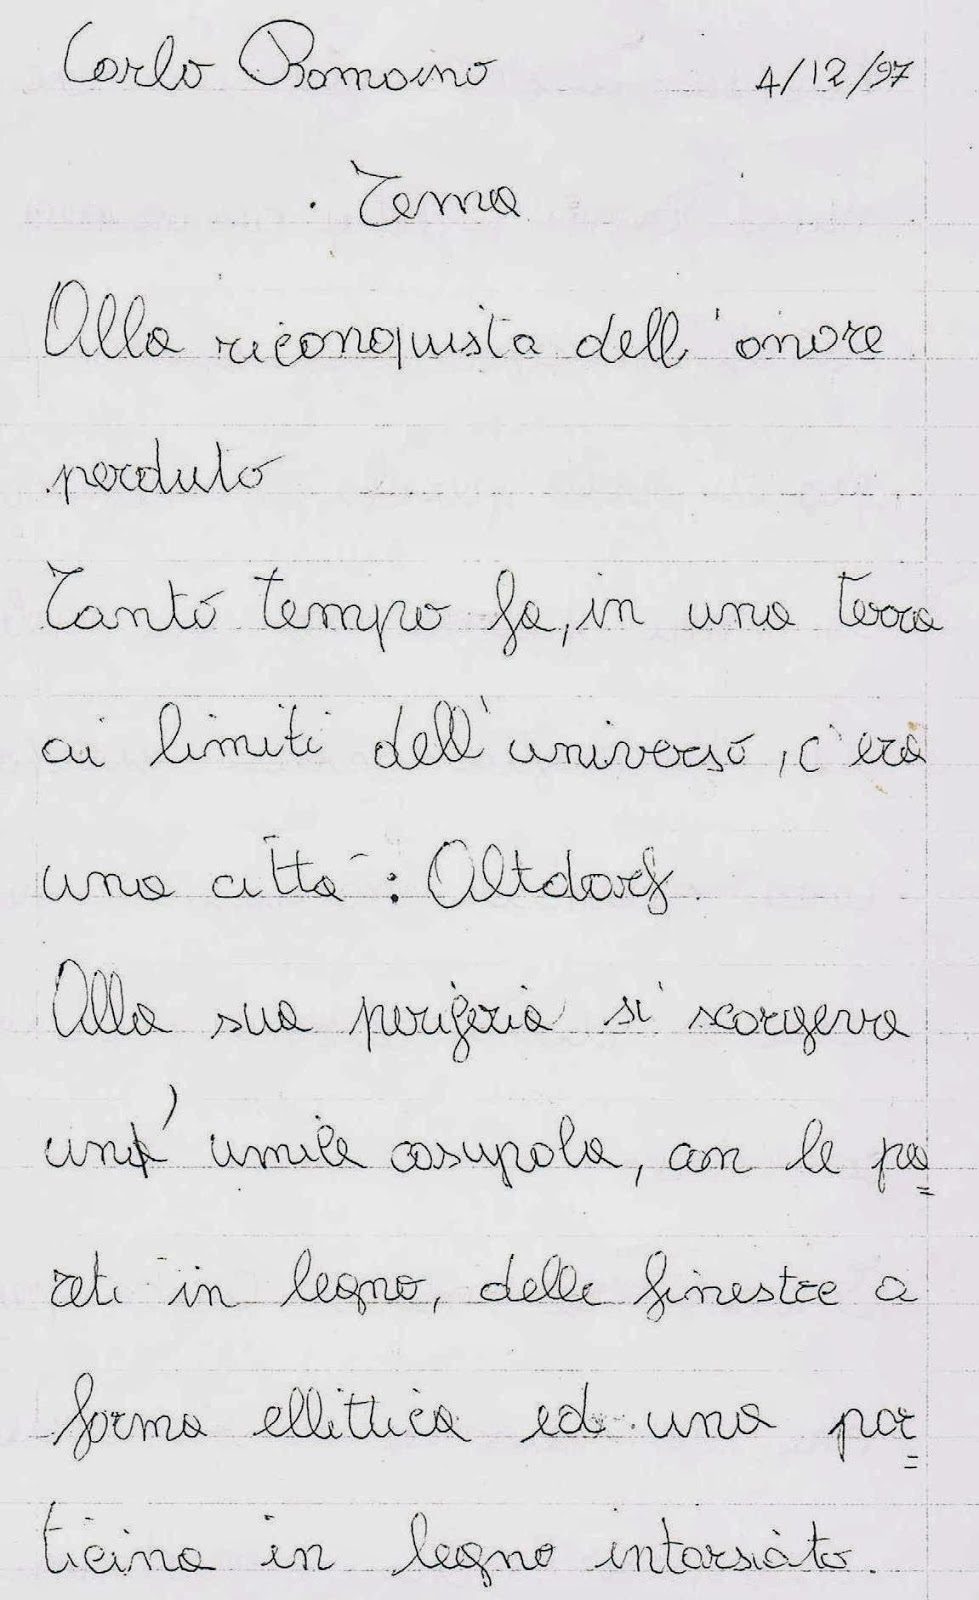 Carlo Romoino 4/12/97
. Tema
Alla riconquista dell'onore
perduto
Tanto tempo fa, in una terra
ai limiti dell'universo, c'era
una città: Altdorf.
Alla sua periferia si scorgeva
un' umile casupola, con le pa=
reti in legno, delle finestre a
forma ellittica ed una por=
ticina in legno intarsiato.